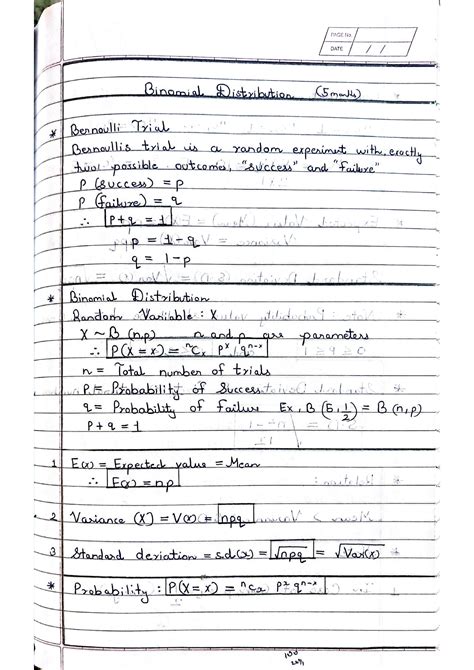 PAGE No.
DATE / /
Binomial Distribution (5 marks)
* Bernoulli Trial
Bernoullis trial is a random experiment with exactly
two possible outcomes, "success" and "failure"
P (success) = p
P (failure) = q
∴ p+q = 1
p = 1-q
q = 1-p
* Binomial Distribution
Random Variable : X
X ~ B (n,p) n and p are parameters
∴ P(X = x) = ⁿCₓ pˣ qⁿ⁻ˣ
n = Total number of trials
P = Probability of Success
q = Probability of failure Ex, B (5, 1/2) = B (n,p)
P + q = 1
1 E(x) = Expected value = Mean
∴ E(x) = np
2 Variance (X) = V(x) = npq
3 Standard deviation = s.d(x) = √npq = √Var(x)
* Probability : P(X = x) = ⁿCₓ pˣ qⁿ⁻ˣ